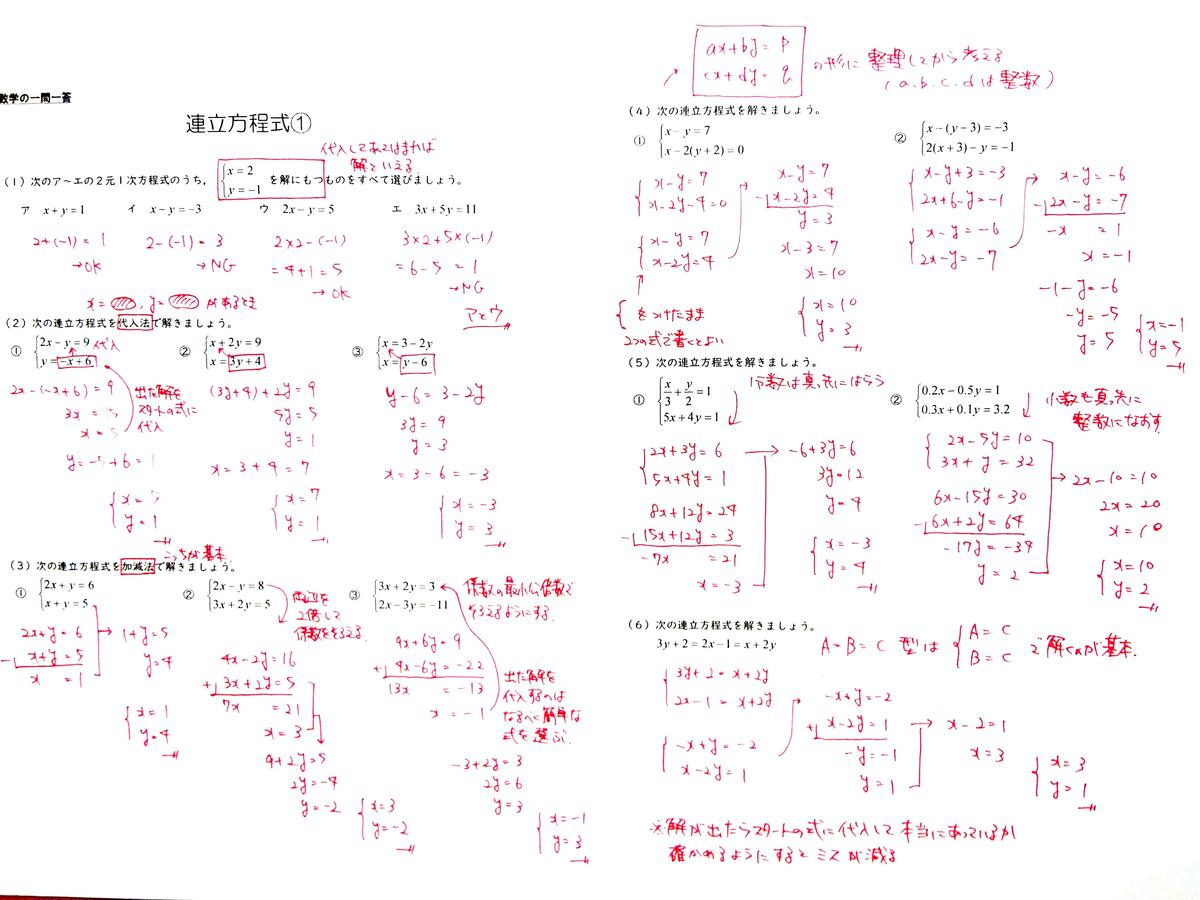 数学の一問一答
連立方程式①
代入してあてはまれば
解といえる
(1)次のア~エの2元1次方程式のうち, { x=2 y=-1 を解にもつものをすべて選びましょう。
ア x+y=1 イ x-y=-3 ウ 2x-y=5 エ 3x+5y=11
2+(-1)=1 2-(-1)=3 2×2-(-1) 3×2+5×(-1)
→OK →NG =4+1=5 =6-5=1
→OK →NG
アとウ
x= , y= があるとき
(2)次の連立方程式を代入法で解きましょう。
① { 2x-y=9 代入
y=-x+6
2x-(-x+6)=9
3x=15
x=5
y=-5+6=1
出た解を
スタートの式に
代入
{ x=5
y=1
② { x+2y=9
x=3y+4
(3y+4)+2y=9
5y=5
y=1
x=3+4=7
{ x=7
y=1
③ { x=3-2y
x=y-6
y-6=3-2y
3y=9
y=3
x=3-6=-3
{ x=-3
y=3
こっちが基本
(3)次の連立方程式を加減法で解きましょう。
① { 2x+y=6
x+y=5
2x+y=6
-) x+y=5
x =1
1+y=5
y=4
{ x=1
y=4
② { 2x-y=8
3x+2y=5
両辺を
2倍して
係数をそろえる
4x-2y=16
+) 3x+2y=5
7x =21
x=3
9+2y=5
2y=-4
y=-2
{ x=3
y=-2
③ { 3x+2y=3
2x-3y=-11
係数の最小公倍数で
そろえるようにする
9x+6y=9
+) 4x-6y=-22
13x =-13
x=-1
出た解を
代入するのは
なるべく簡単な
式を選ぶ.
-3+2y=3
2y=6
y=3
{ x=-1
y=3
ax+by=p
cx+dy=q
の形に整理してから考える
(a.b.c.dは整数)
(4)次の連立方程式を解きましょう。
① { x-y=7
x-2(y+2)=0
{ x-y=7
x-2y-4=0
{ x-y=7
x-2y=4
{ をつけたまま
2つの式で書くとよい
x-y=7
-) x-2y=4
y=3
x-3=7
x=10
{ x=10
y=3
② { x-(y-3)=-3
2(x+3)-y=-1
{ x-y+3=-3
2x+6-y=-1
{ x-y=-6
2x-y=-7
x-y=-6
-) 2x-y=-7
-x =1
x=-1
-1-y=-6
-y=-5
y=5
{ x=-1
y=5
(5)次の連立方程式を解きましょう。
① { x/3+y/2=1
5x+4y=1
分数は真っ先にはらう
{ 2x+3y=6
5x+4y=1
8x+12y=24
-) 15x+12y=3
-7x =21
x=-3
-6+3y=6
3y=12
y=4
{ x=-3
y=4
② { 0.2x-0.5y=1
0.3x+0.1y=3.2
小数も真っ先に
整数になおす
{ 2x-5y=10
3x+y=32
6x-15y=30
-) 6x+2y=64
-17y=-34
y=2
2x-10=10
2x=20
x=10
{ x=10
y=2
(6)次の連立方程式を解きましょう。
3y+2=2x-1=x+2y
A=B=C 型は { A=C B=C で解くのが基本.
{ 3y+2=x+2y
2x-1=x+2y
{ -x+y=-2
x-2y=1
-x+y=-2
+) x-2y=1
-y=-1
y=1
x-2=1
x=3
{ x=3
y=1
※解が出たらスタートの式に代入して本当にあっているか
確かめるようにするとミスが減る